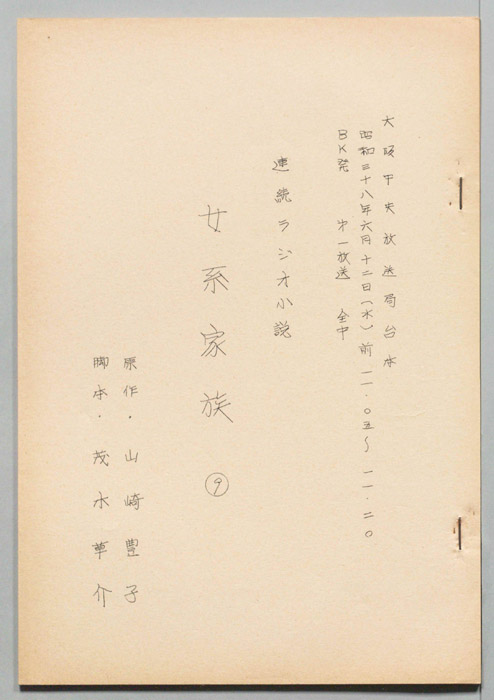 大阪中央放送局台本
昭和三十八年六月十二日(水)前一一・〇五〜一一・二〇
BK発 オ一放送 全中
連続ラジオ小説
女系家族 ⑨
原作・山崎豊子
脚本・茂木草介